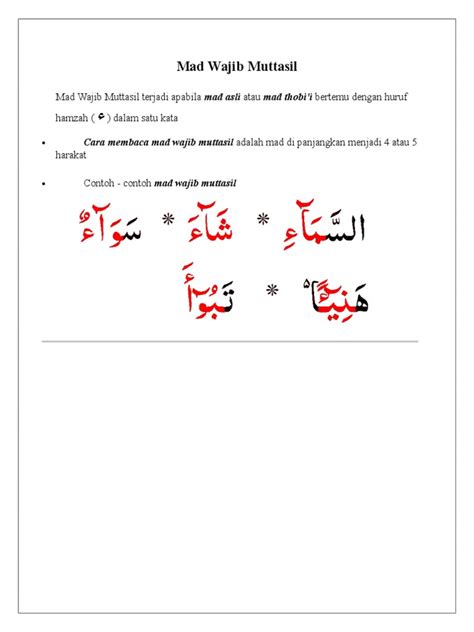 Mad Wajib Muttasil
Mad Wajib Muttasil terjadi apabila mad asli atau mad thobi'i bertemu dengan huruf
hamzah ( ء ) dalam satu kata
• Cara membaca mad wajib muttasil adalah mad di panjangkan menjadi 4 atau 5
harakat
• Contoh - contoh mad wajib muttasil
السَّمَآءِ * شَآءَ * سَوَآءٌ
هَنِيٓـًٔا * تَبُوٓأَ